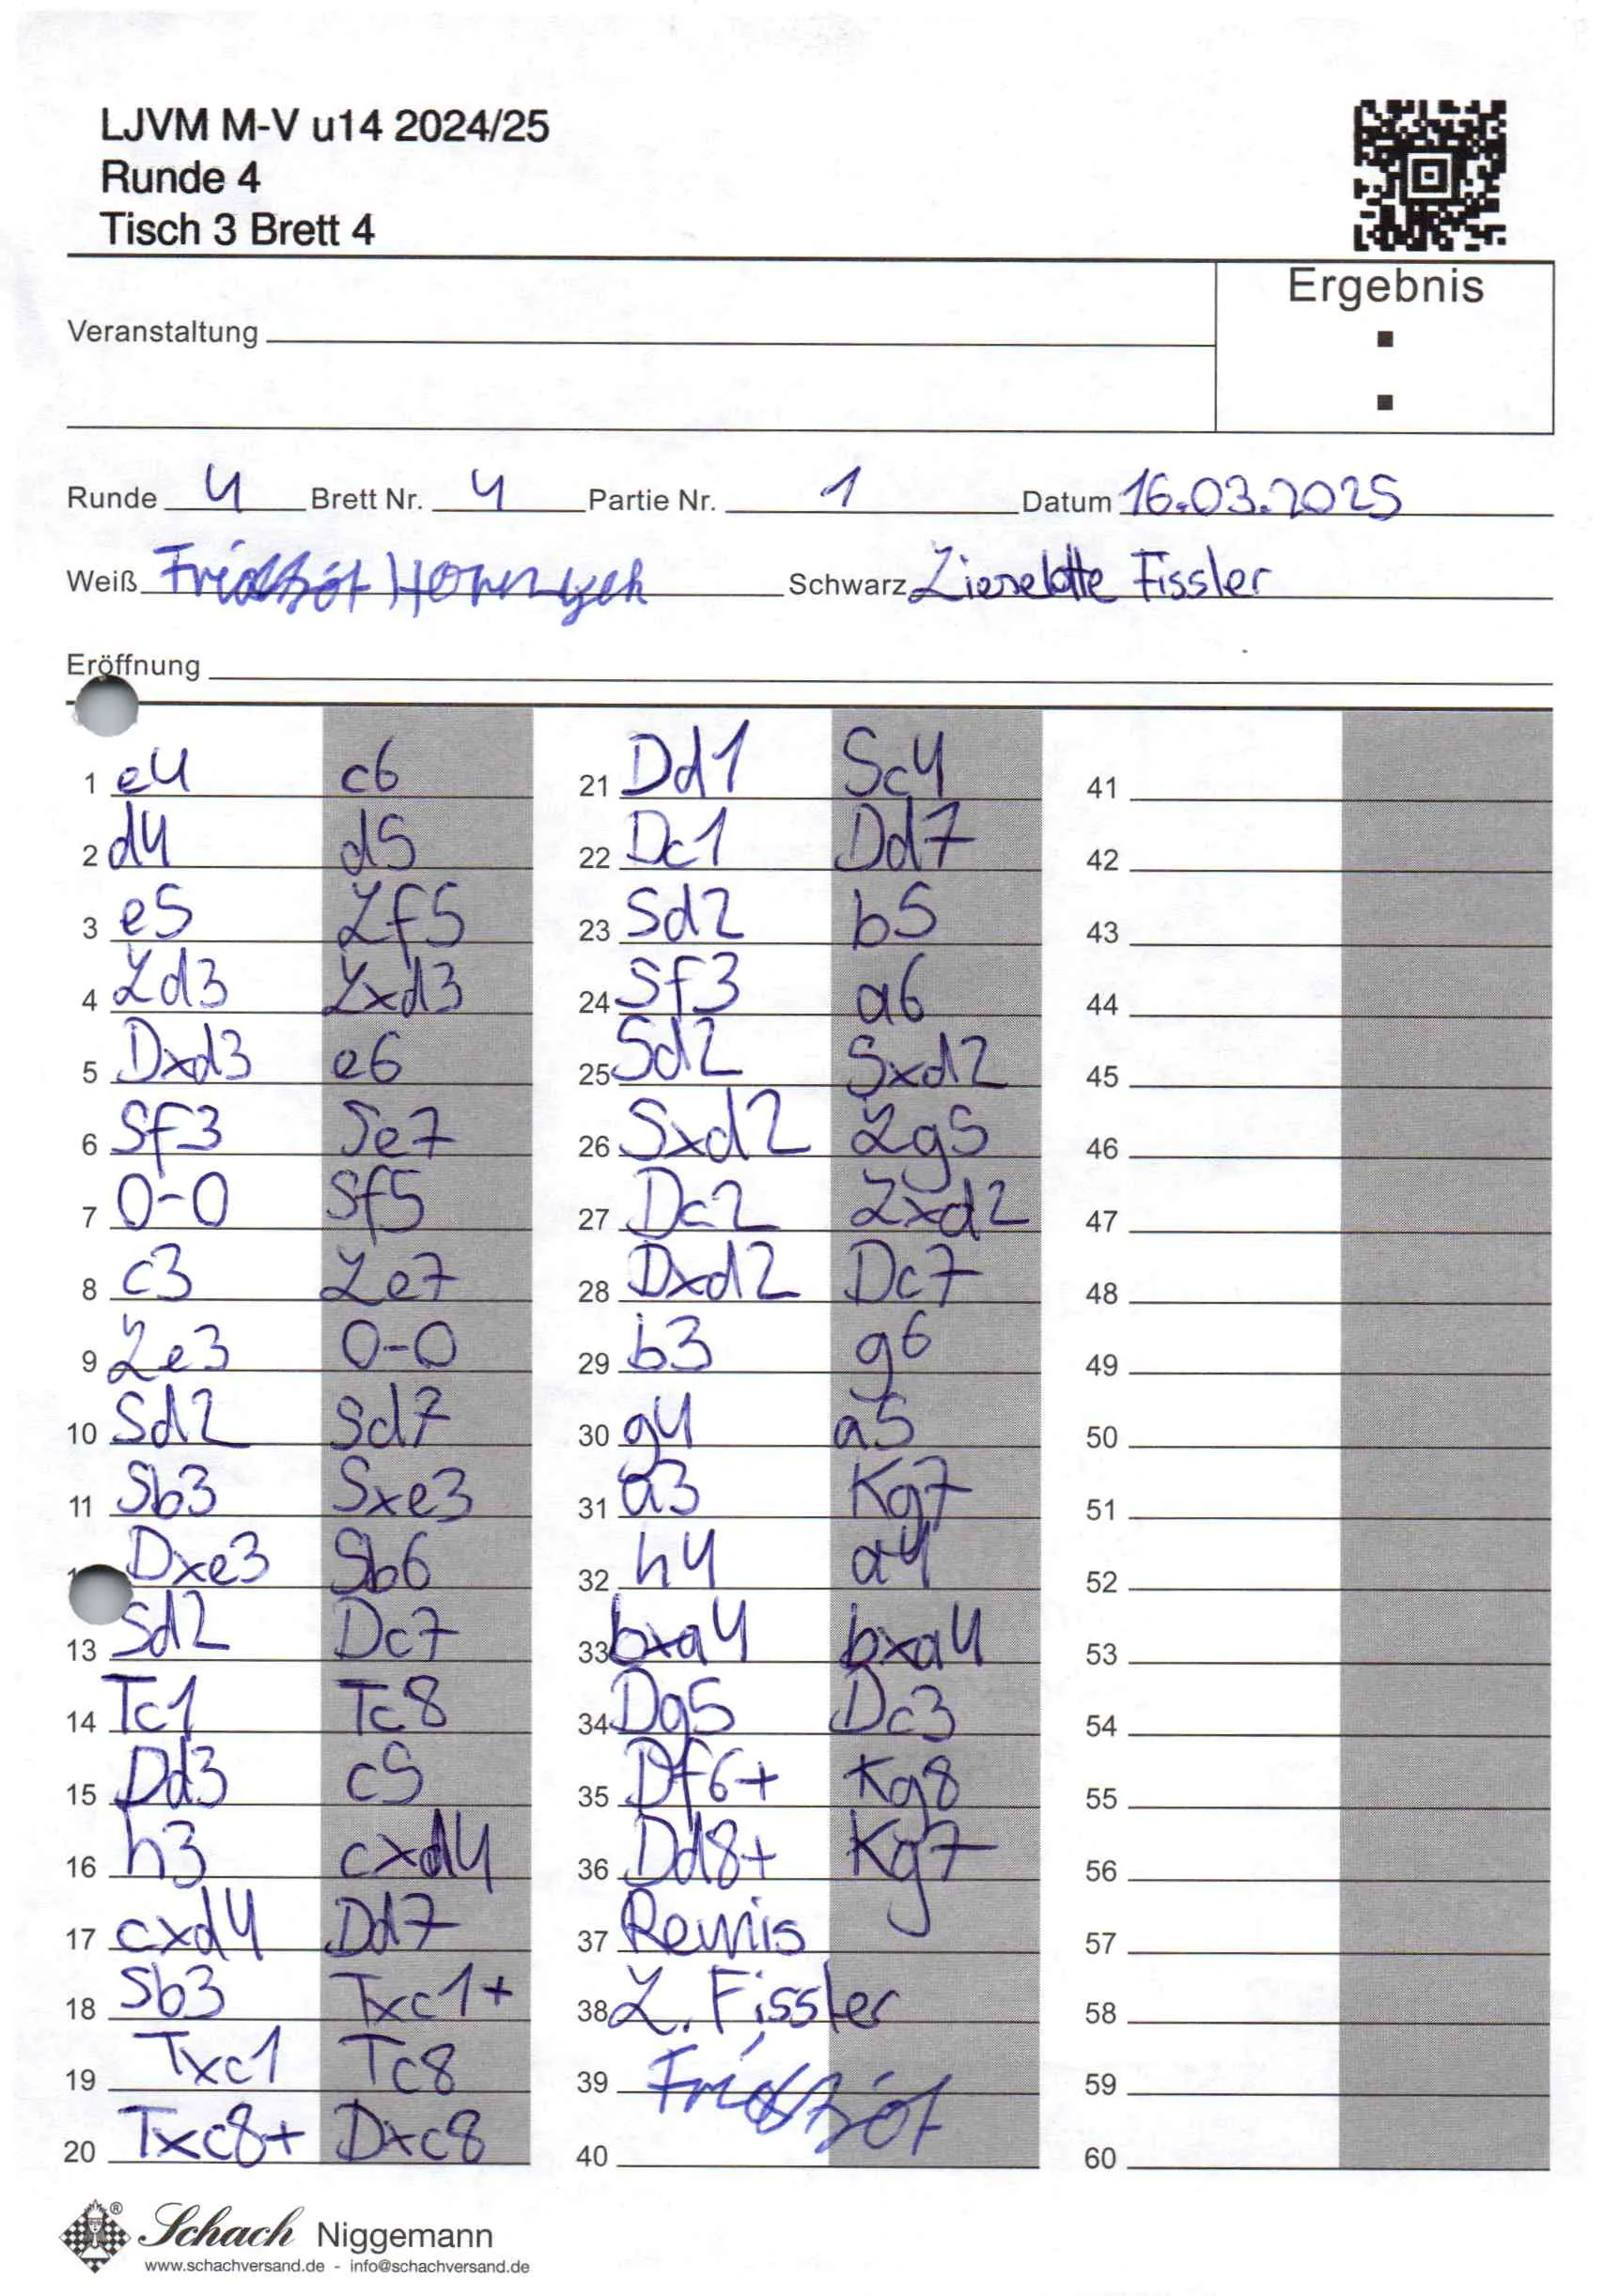 LJVM M-V u14 2024/25
Runde 4
Tisch 3 Brett 4
Ergebnis
:
Veranstaltung
Runde 4 Brett Nr. 4 Partie Nr. 1 Datum 16.03.2025
Weiß Schwarz Lieselotte Fissler
Eröffnung
1 e4 c6
2 d4 d5
3 e5 Lf5
4 Ld3 Lxd3
5 Dxd3 e6
6 Sf3 Se7
7 0-0 Sf5
8 c3 Le7
9 Le3 0-0
10 Sd2 Sd7
11 Sb3 Sxe3
Dxe3 Sb6
13 Sd2 Dc7
14 Tc1 Tc8
15 Dd3 c5
16 h3 cxd4
17 cxd4 Dd7
18 Sb3 Txc1+
19 Txc1 Tc8
20 Txc8+ Dxc8
21 Dd1 Sc4
22 Dc1 Dd7
23 Sd2 b5
24 Sf3 a6
25 Sd2 Sxd2
26 Sxd2 Lg5
27 Dc2 Lxd2
28 Dxd2 Dc7
29 b3 g6
30 g4 a5
31 a3 Kg7
32 h4 a4
33 bxa4 bxa4
34 Dg5 Dc3
35 Df6+ Kg8
36 Dd8+ Kg7
37 Remis
38 L. Fissler
39 Fridtjof
40
41
42
43
44
45
46
47
48
49
50
51
52
53
54
55
56
57
58
59
60
® Schach Niggemann
www.schachversand.de - info@schachversand.de